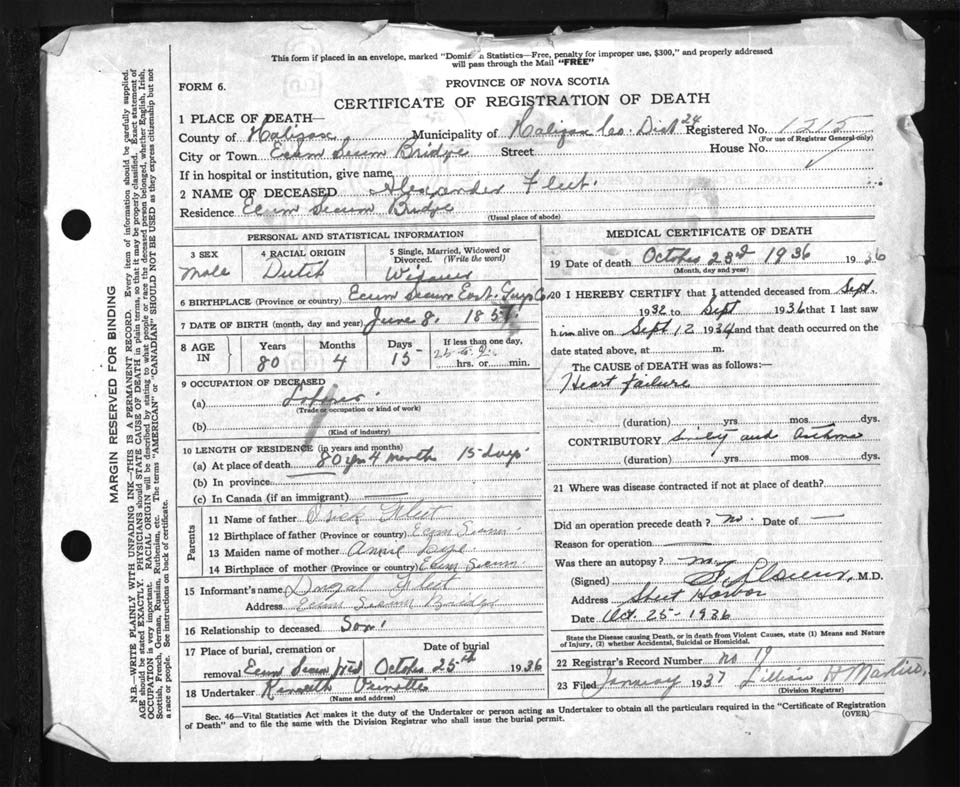 This form if placed in an envelope, marked "Domin n Statistics—Free, penalty for improper use, $300," and properly addressed
will pass through the Mail "FREE"
FORM 6.
PROVINCE OF NOVA SCOTIA
CERTIFICATE OF REGISTRATION OF DEATH
1 PLACE OF DEATH—
County of Halifax Municipality of Halifax Co. Dist 24 Registered No. 1215
(For use of Registrar General only)
City or Town Ecum Secum Bridge Street House No.
If in hospital or institution, give name
2 NAME OF DECEASED Alexander Fleet.
Residence Ecum Secum Bridge
(Usual place of abode)
PERSONAL AND STATISTICAL INFORMATION
3 SEX Male
4 RACIAL ORIGIN Dutch
5 Single, Married, Widowed or Divorced. (Write the word)
6 BIRTHPLACE (Province or country) Ecum Secum East. Guys Co.
7 DATE OF BIRTH (month, day and year) June 8. 185
8 AGE IN Years 80 Months 4 Days 15 If less than one day, hrs. or min.
9 OCCUPATION OF DECEASED
(a)
(Trade or occupation or kind of work)
(b)
(Kind of industry)
10 LENGTH OF RESIDENCE (in years and months)
(a) At place of death 80 yrs 4 months 15 days
(b) In province
(c) In Canada (if an immigrant)
Parents
11 Name of father Fleet
12 Birthplace of father (Province or country) Ecum Secum
13 Maiden name of mother Annie
14 Birthplace of mother (Province or country) Ecum Secum
15 Informant's name Dugal Fleet
Address Ecum Secum Bridge
16 Relationship to deceased Son
17 Place of burial, cremation or removal Date of burial
Ecum Secum October 25th 1936
18 Undertaker Kenneth
(Name and address)
MEDICAL CERTIFICATE OF DEATH
19 Date of death October 23d 1936 1936
(Month, day and year)
20 I HEREBY CERTIFY that I attended deceased from Sept.
1932 to Sept 1936 that I last saw
him alive on Sept 12 1934 and that death occurred on the
date stated above, at m.
The CAUSE of DEATH was as follows:—
Heart failure
(duration) yrs. mos. dys.
CONTRIBUTORY Senility and Asthma
(duration) yrs. mos. dys.
21 Where was disease contracted if not at place of death?
Did an operation precede death? no. Date of —
Reason for operation —
Was there an autopsy? no
(Signed) M.D.
Address Sheet Harbor
Date Oct. 25 - 1936
State the Disease causing Death, or in death from Violent Causes, state (1) Means and Nature
of Injury, (2) whether Accidental, Suicidal or Homicidal.
22 Registrar's Record Number no 19
23 Filed January 1937 Lillian H Martin,
(Division Registrar)
Sec. 46—Vital Statistics Act makes it the duty of the Undertaker or person acting as Undertaker to obtain all the particulars required in the "Certificate of Registration
of Death" and to file the same with the Division Registrar who shall issue the burial permit.
(OVER)
MARGIN RESERVED FOR BINDING
N.B.—WRITE PLAINLY WITH UNFADING INK—THIS IS A PERMANENT RECORD. Every item of information should be carefully supplied.
AGE should be stated EXACTLY. PHYSICIANS should STATE CAUSE OF DEATH in plain terms, so that it may be properly classified. Exact statement of
OCCUPATION is very important. RACIAL ORIGIN will be described by stating to what people or race the deceased person belonged, whether English, Irish,
Scottish, French, German, Russian, Ruthenian, etc. The terms "AMERICAN" or "CANADIAN" SHOULD NOT BE USED as they express citizenship but not
a race or people. See instructions on back of certificate.